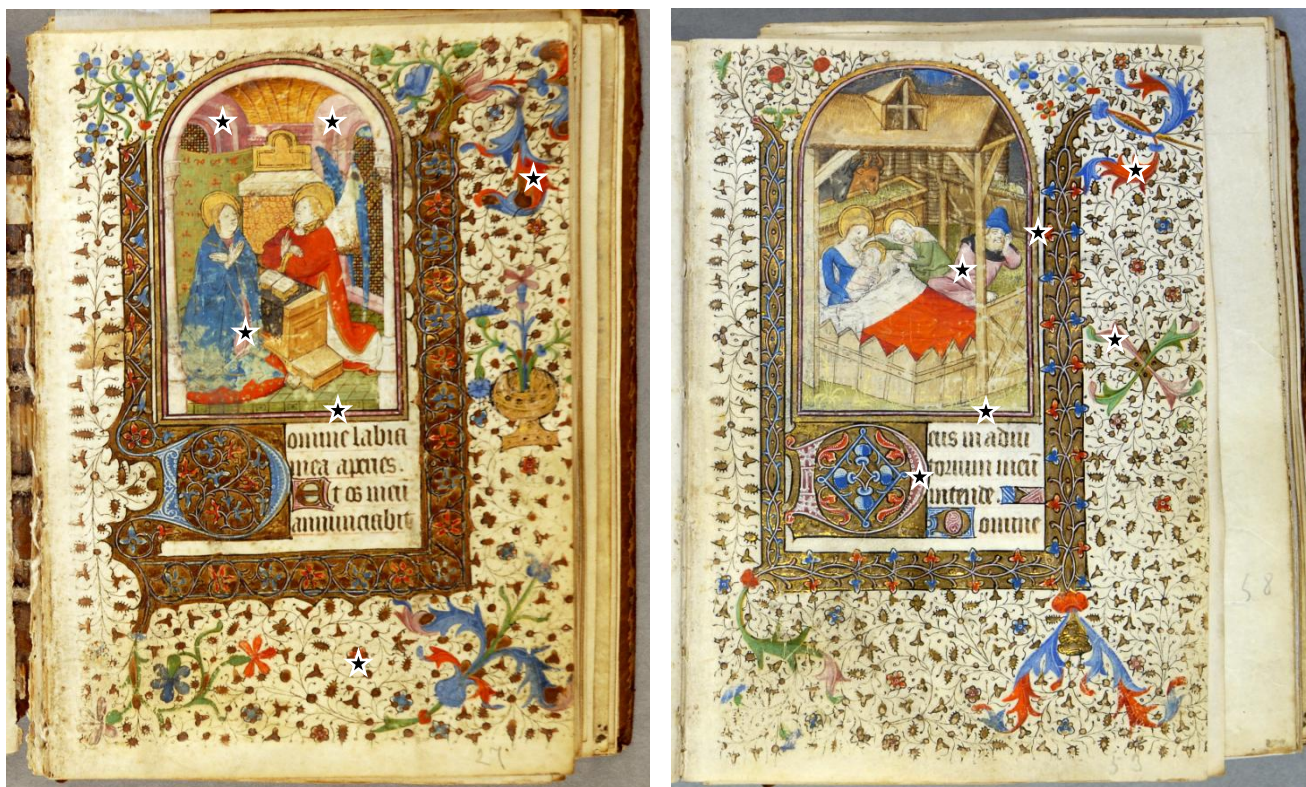 Domine labia
mea aperies.
Et os meū
annunciabit
27
Deus in adiu
torium meū
intende.
Domine
58
58